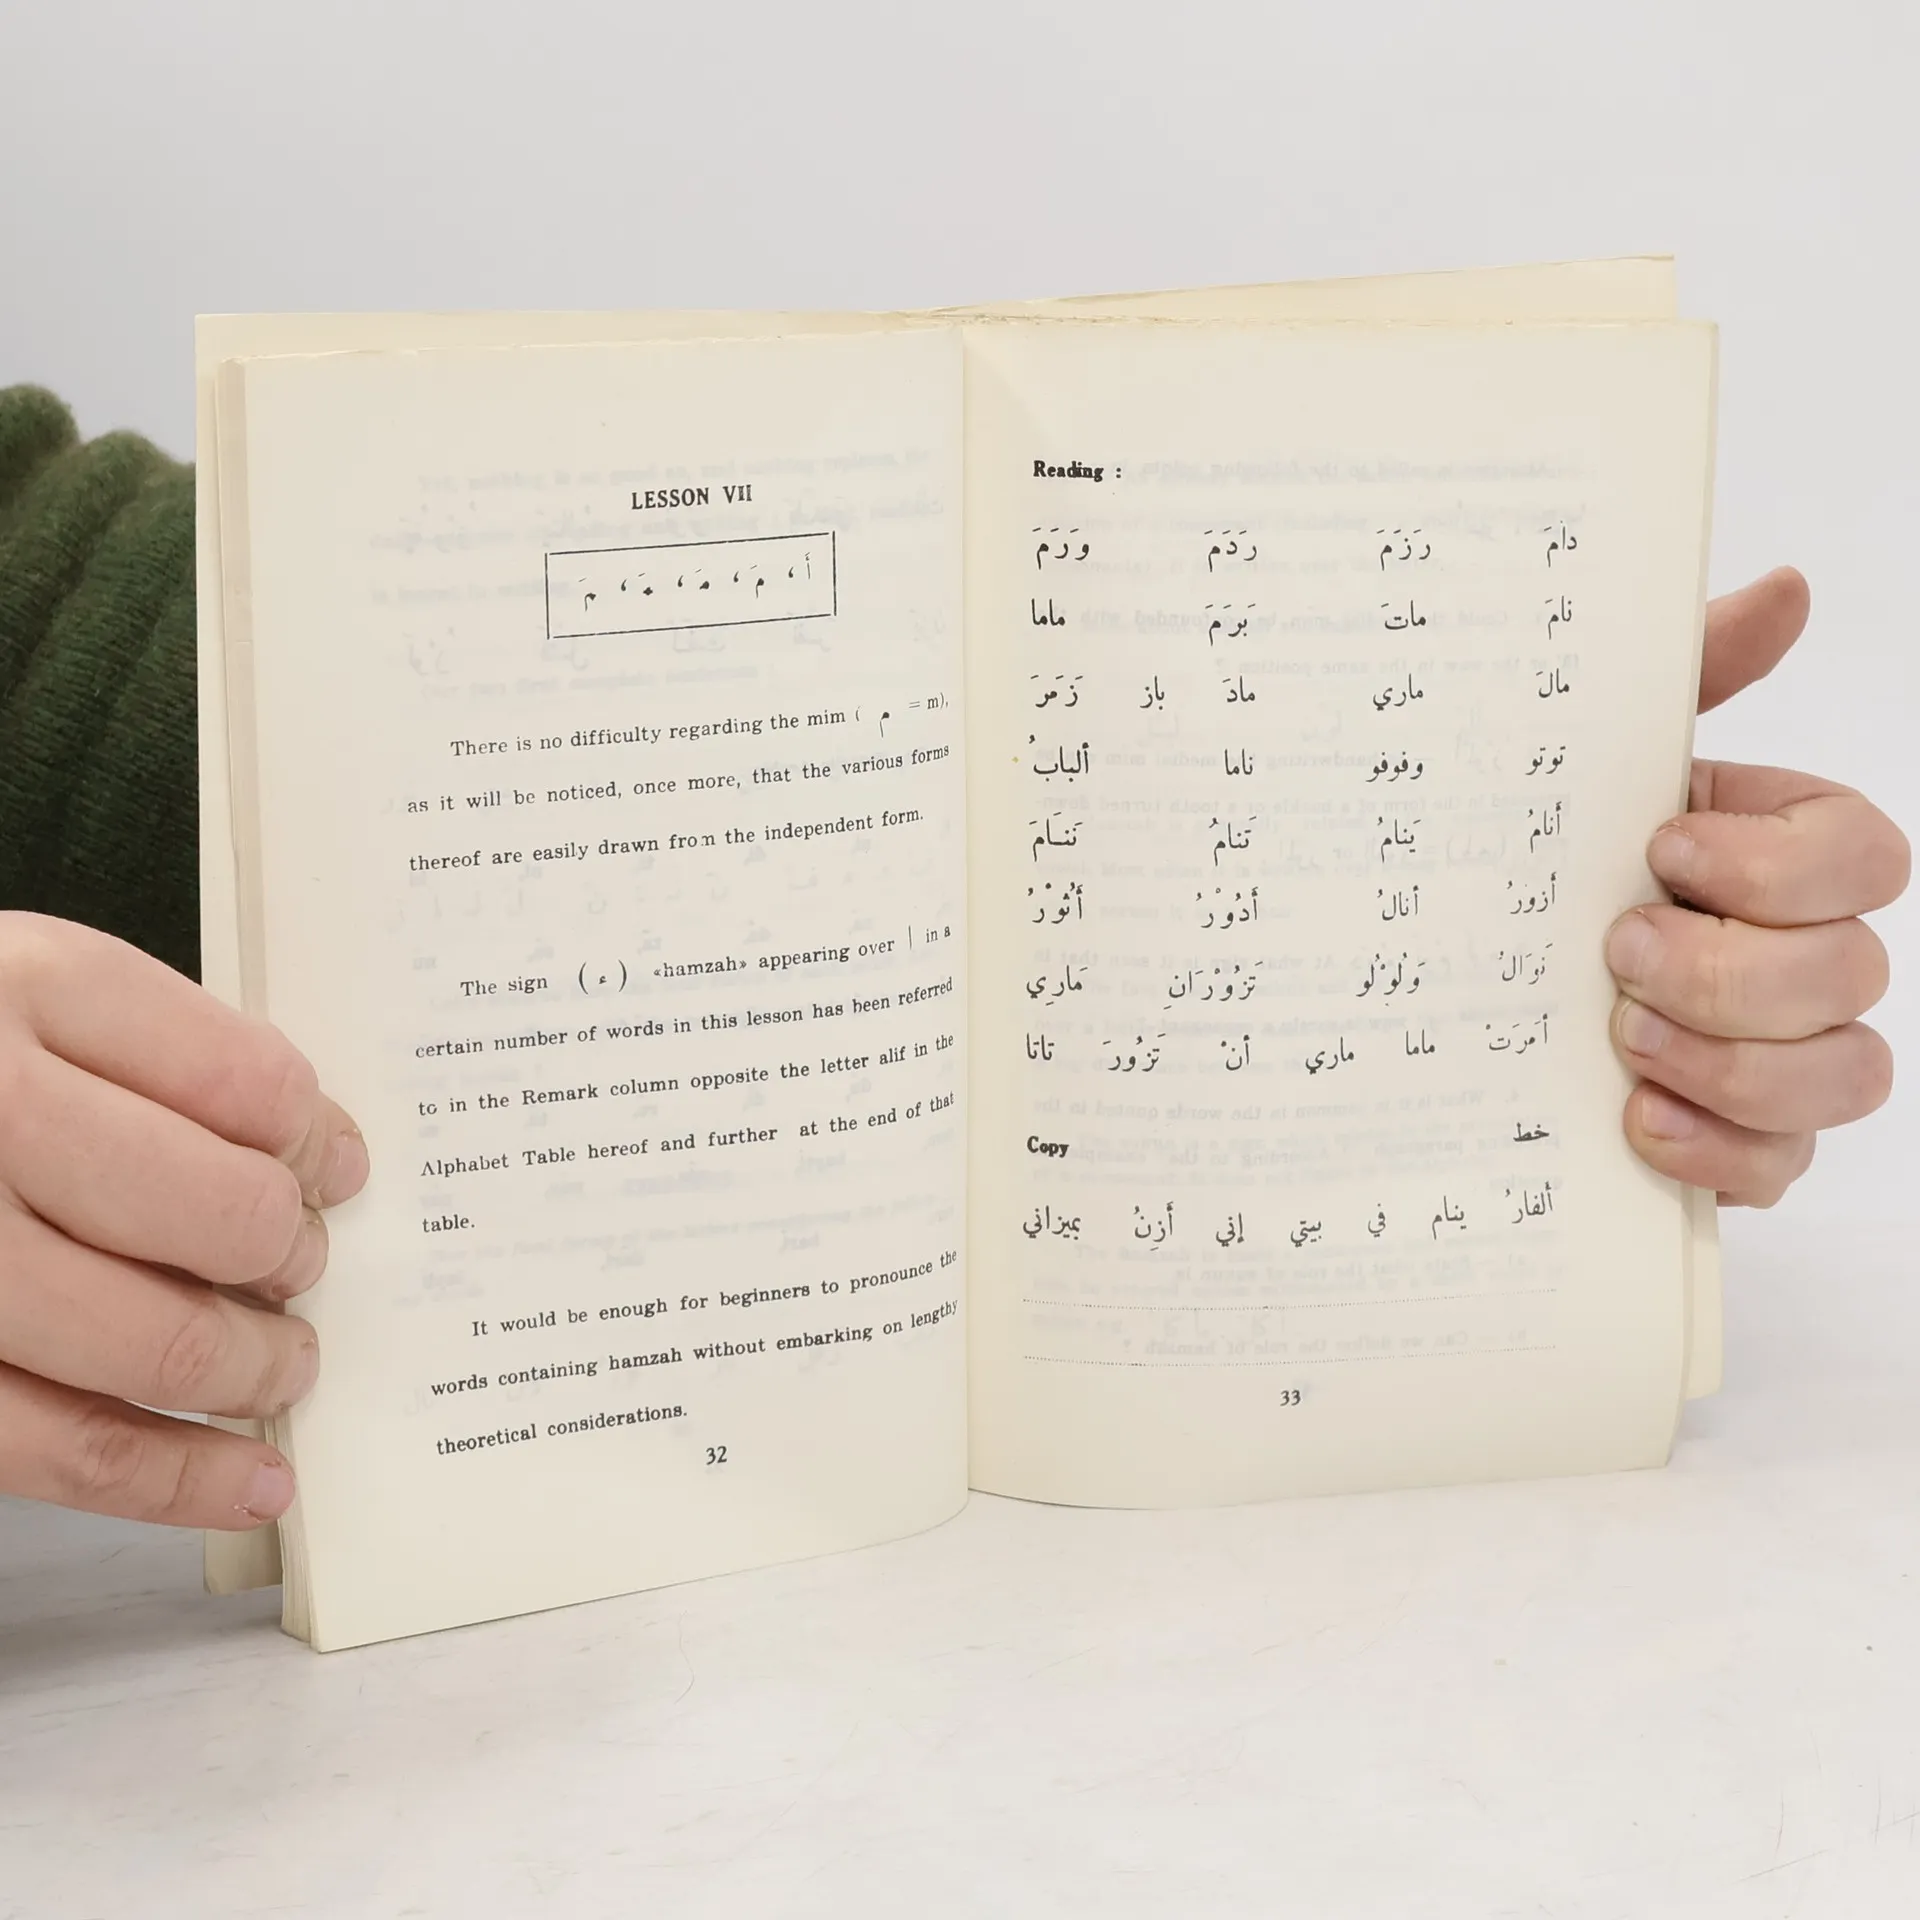 LESSON VII
أَ ، مَ ، مَـ ، ـمَـ ، مَ
There is no difficulty regarding the mim ( م = m),
as it will be noticed, once more, that the various forms
thereof are easily drawn from the independent form.
The sign ( ء ) «hamzah» appearing over ا in a
certain number of words in this lesson has been referred
to in the Remark column opposite the letter alif in the
Alphabet Table hereof and further at the end of that
table.
It would be enough for beginners to pronounce the
words containing hamzah without embarking on lengthy
theoretical considerations.
32
Reading :
دامَ رَزَمَ رَدَمَ وَرَمَ
نامَ ماتَ بَرَمَ ماما
مالَ ماري مادَ باز زَمَرَ
توتو وفوفو ناما ألبابُ
أَنامُ يَنامُ تَنامُ تَنـامَ
أَزورُ أنالُ أَدُوْرُ أَثُوْرُ
نَوَالُ وَلُوْلُو تَزُوْرَانِ مَارِي
أَمَرَتْ ماما ماري أَنْ تَزُورَ تاتا
Copy خط
ألفارُ ينام في بيتي إني أَزِنُ بميزاني
33